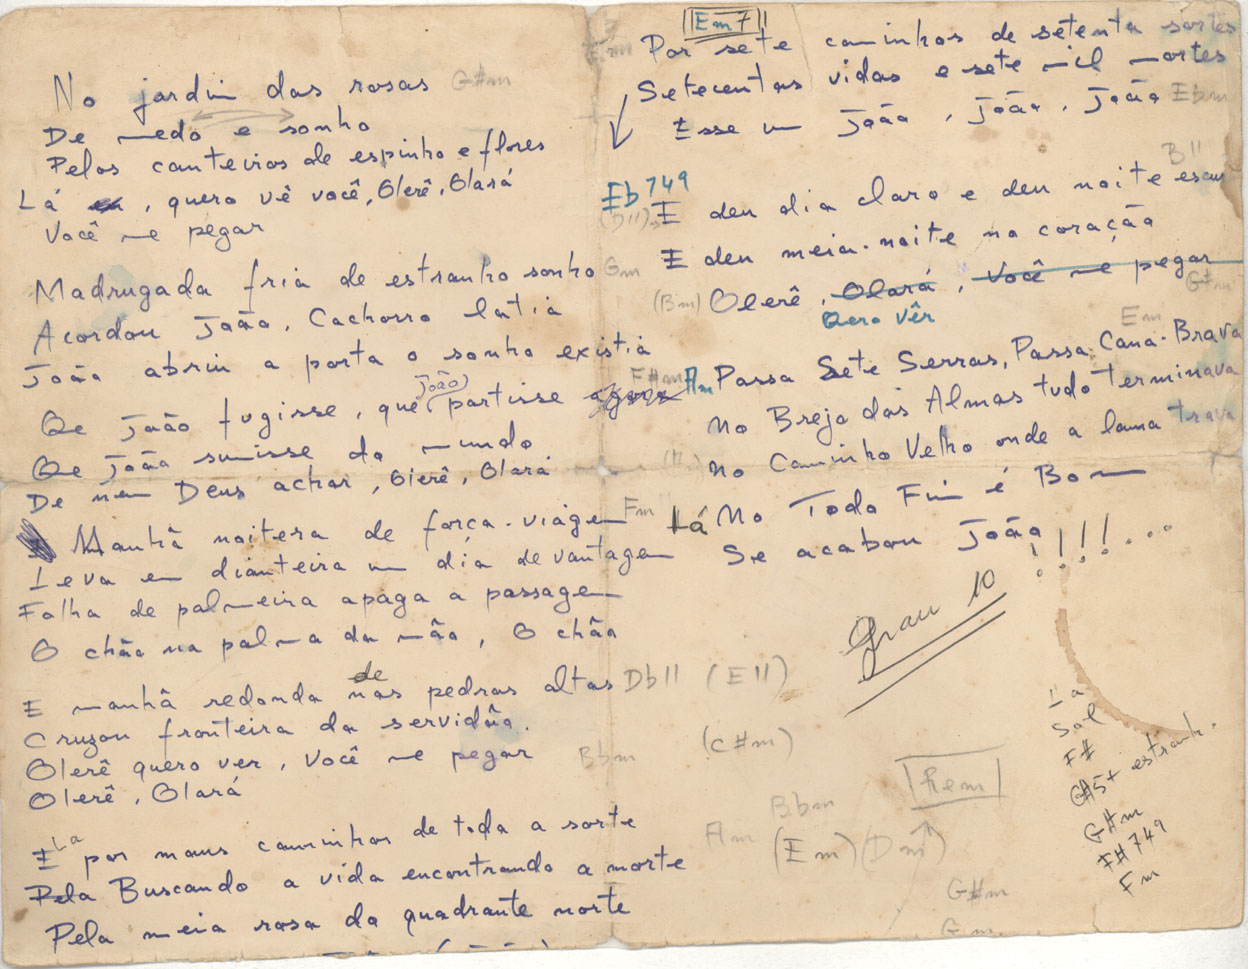 No jardin das rosas G#m
De medo e sonho
Pelos canteiros de espinho e flores
Lá , quero vê você, Olerê, Olará
Você me pegar
Madrugada fria de estranho sonho Gm
Acordou João, Cachorro latia
João abriu a porta o sonho existia
Qe João fugisse, que (João) partisse F#m
Qe João sumisse do mundo
De nem Deus achar, Olerê, Olará
Manhã noitera de força-viágem Fm
Leva em dianteira um dia de vantagem
Folha de palmeira apaga a passagem
O chão na palma da mão, O chão
E manhã redonda de nas pedras altas Db11 (E11)
Cruzou fronteira da servidão. (C#m)
Olerê quero ver, Você me pegar Bbm
Olerê, Olará
E La por maus caminhos de toda a sorte
Pela Buscando a vida encontrando a morte
Pela meia rosa do quadrante norte
Em7
Por sete caminhos de setenta sortes
Setecentas vidas e sete mil mortes
Esse um João, João, João Ebm
B11
Eb749
(D11) E deu dia claro e deu noite escu
E deu meia-noite no coração
(Bm) Olerê, Olará, Você me pegar G#m
Qero vêr
Em
Am Passa Sete Serras, Passa Cana-Brava
No Brejo das Almas tudo terminava
No Caminho Velho onde a lama trava
Lá No Todo Fim é Bom
Se acabou João !!!!...
Grau 10
La
Sol
F#
G#5+ estranh.
G#m
F#749
Fm
Rem
Bbm
Am (Em) (Dm)
G#m
Gm